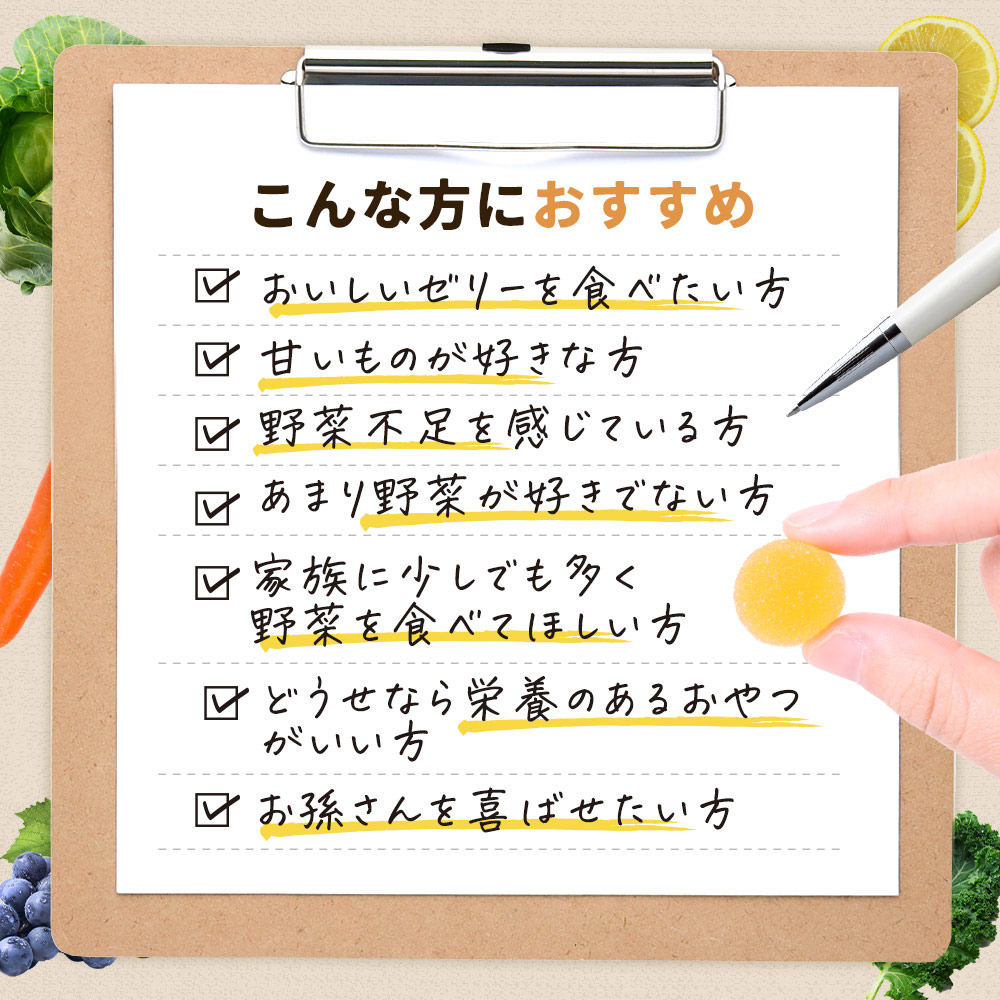 こんな方におすすめ
おいしいゼリーを食べたい方
甘いものが好きな方
野菜不足を感じている方
あまり野菜が好きでない方
家族に少しでも多く
野菜を食べてほしい方
どうせなら栄養のあるおやつ
がいい方
お孫さんを喜ばせたい方